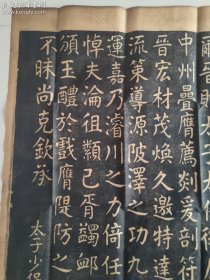 中州疊膺薦剡爰剖符
晉宏材茂煥久邀特達
流策導源陂澤之功九
運嘉乃濬川之力倚任
悼夫淪徂纇已胥蠲卹
頒玉醴於戲膺隄防之
不昧尚克欽承
太子少保